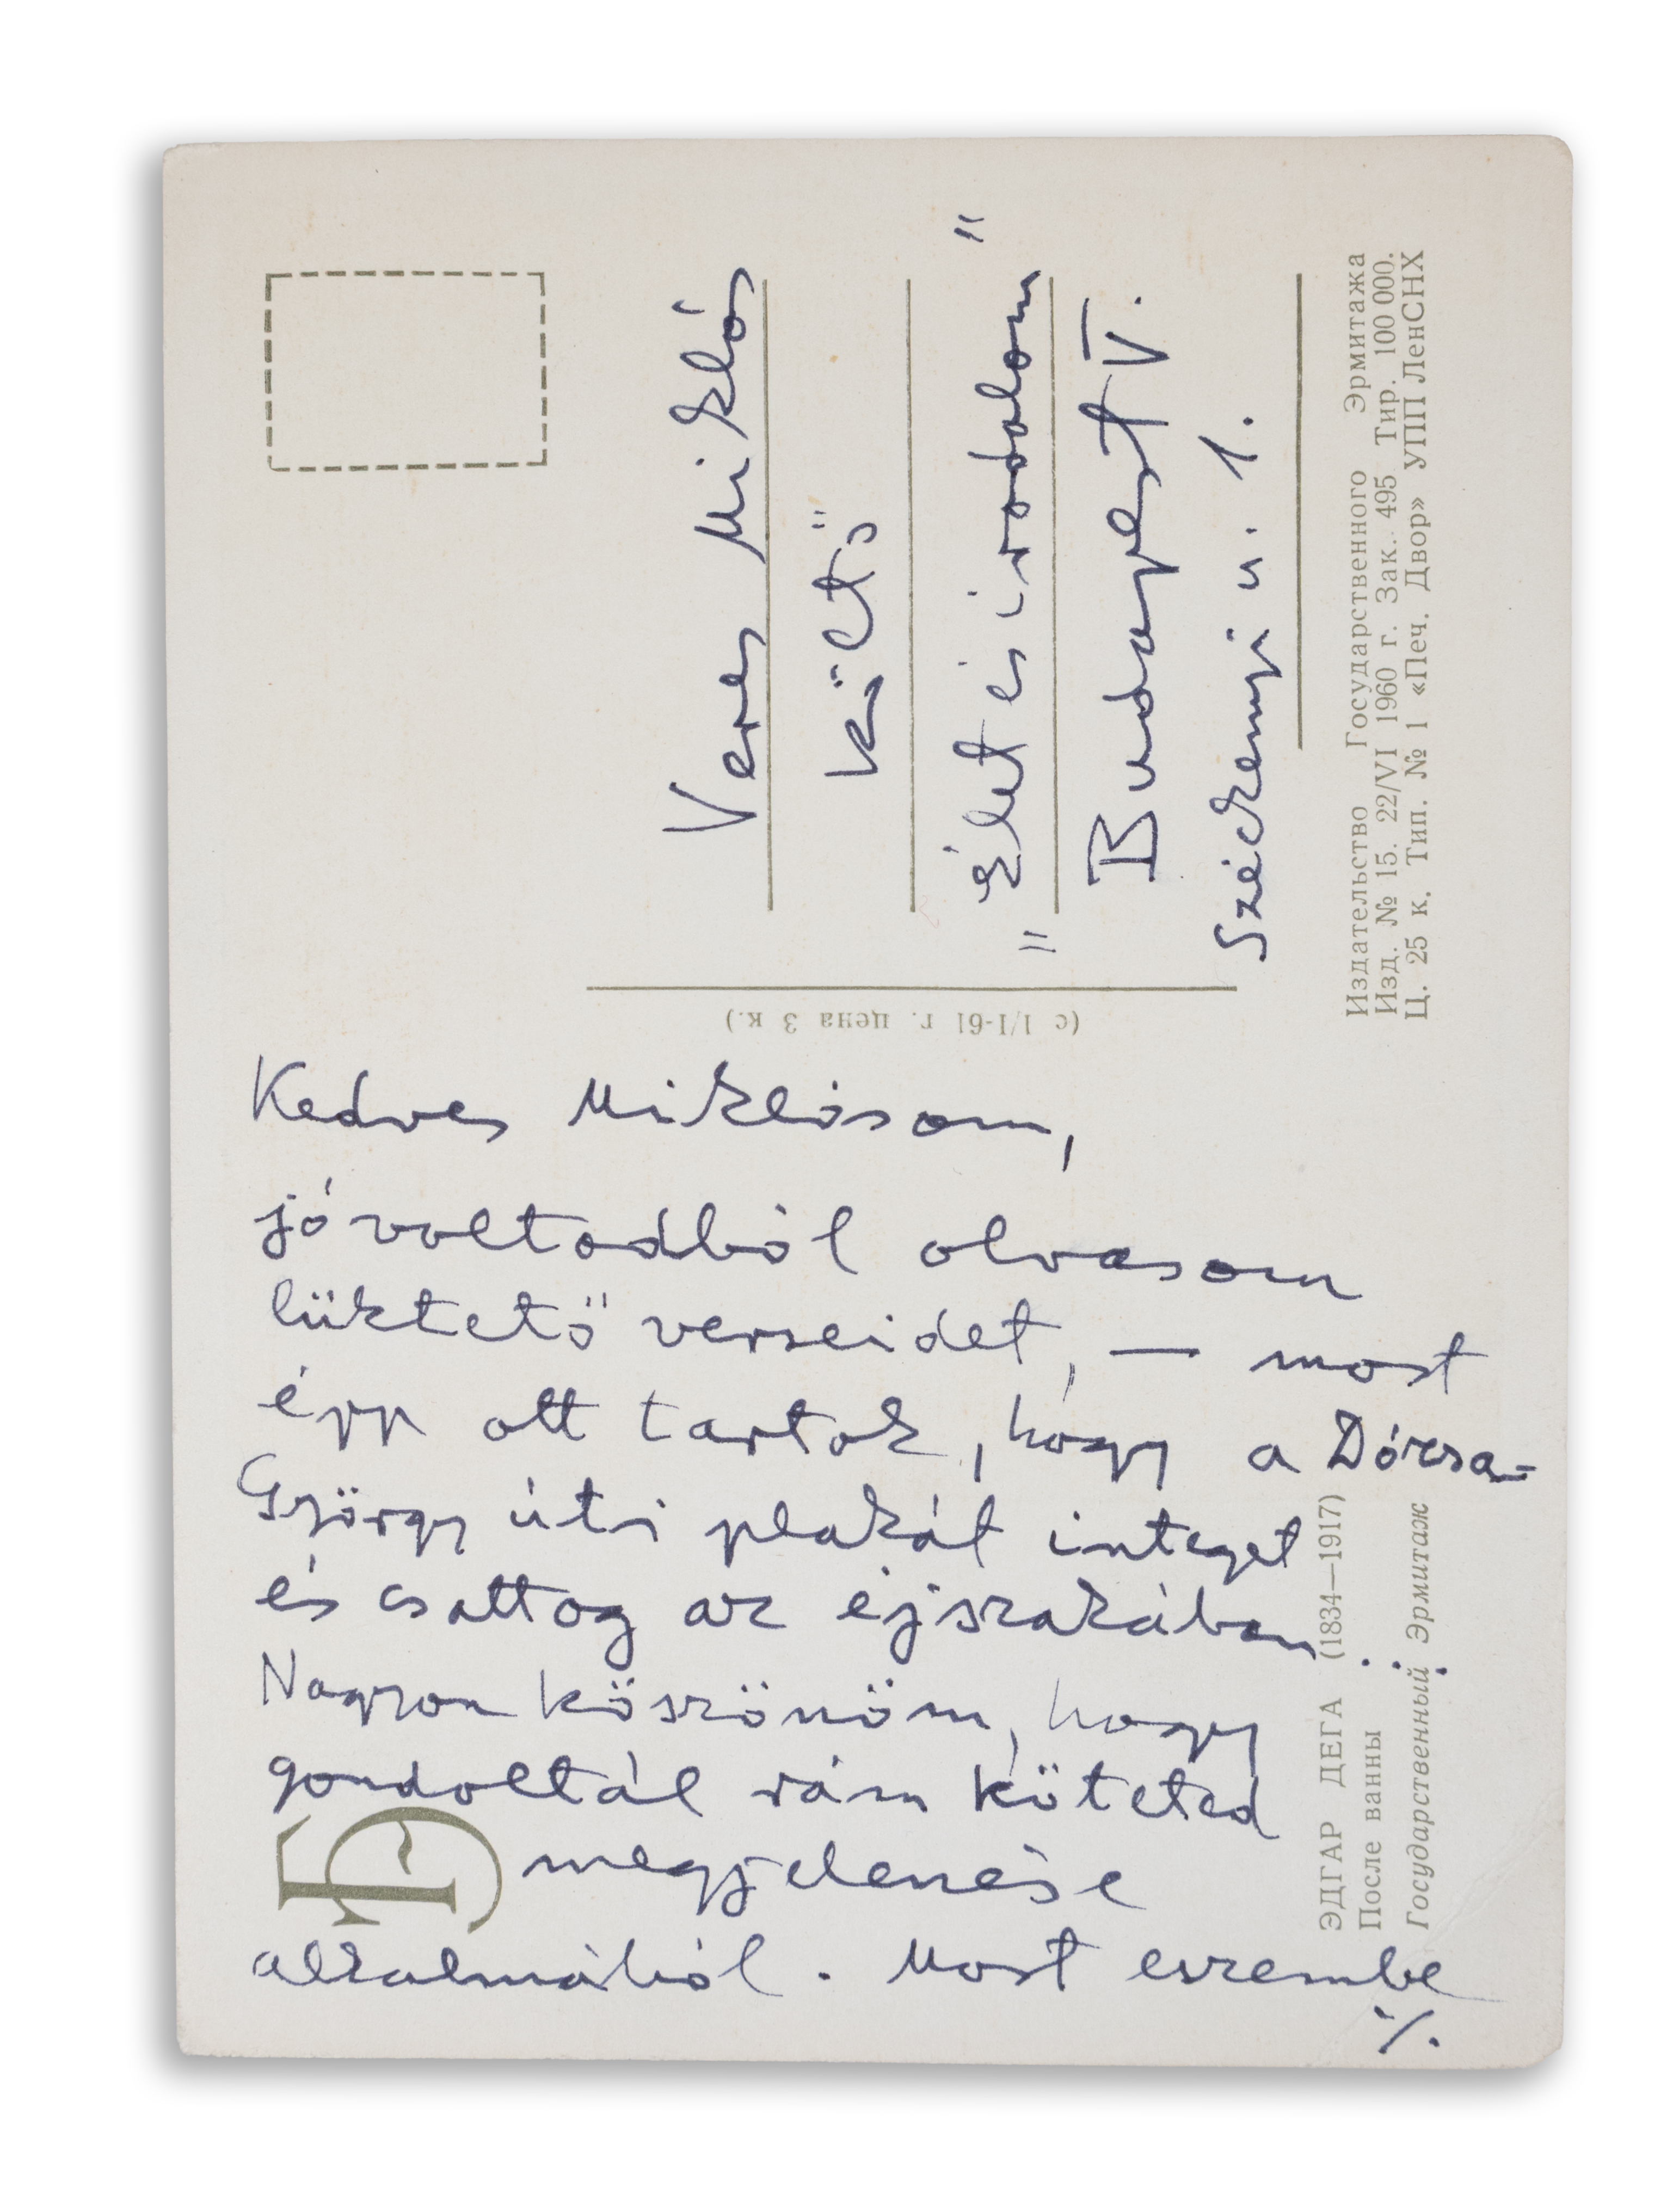 Veres Miklós
költő
"Élet és irodalom"
Budapest V.
Széchenyi u. 1.
Издательство Государственного Эрмитажа
Изд. № 15. 22/VI 1960 г. Зак. 495 Тир. 100 000.
Ц. 25 к. Тип. № 1 «Печ. Двор» УПП ЛенСНХ
(с 1/I-61 г. цена 3 к.)
Kedves Miklósom,
jóvoltodból olvasom
lüktető verseidet, — most
épp ott tartok, hogy a Dózsa-
György úti plakát integet
és csattog az éjszakában...
Nagyon köszönöm, hogy
gondoltál rám köteted
megjelenése
alkalmából. Most eszembe
./.
ЭДГАР ДЕГА (1834—1917)
После ванны
Государственный Эрмитаж